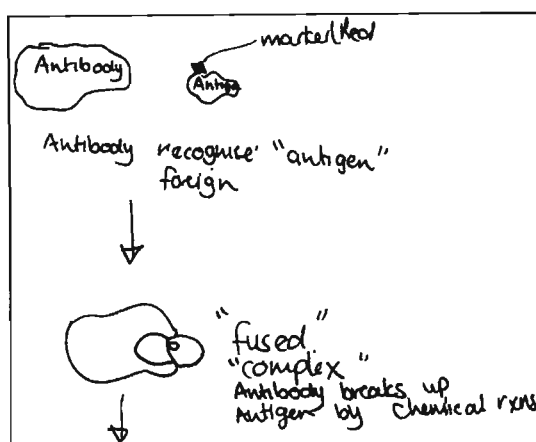 Antibody
Antigen
Antibody recognise "antigen"
foreign
"fused"
"complex"
Antibody breaks up
Antigen by chemical rxns